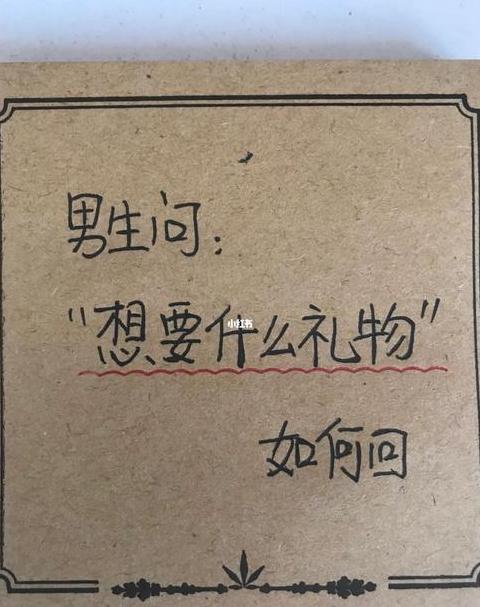 男生问：
“想要什么礼物”
小红书
如何回